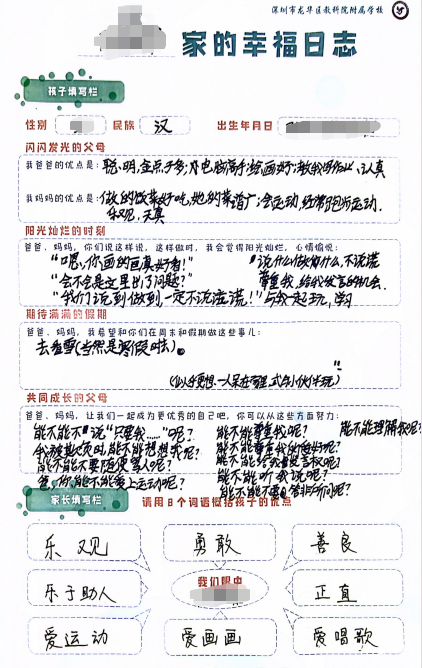 深圳市龙华区教科院附属学校
家的幸福日志
孩子填写栏
性别 民族 汉 出生年月日
闪闪发光的父母
我爸爸的优点是：聪明，金点子多；电脑高手；绘画好；教我写作业，认真
我妈妈的优点是：做的饭菜好吃，她的菜谱广；会运动，经常跑步运动．
乐观，天真
阳光灿烂的时刻
爸爸、妈妈，你们说这样说，这样做时，我会觉得阳光灿烂，心情愉悦：
“嗯，你画的画真好看！” 说什么做什么，不说谎
“会不会是这里出了问题？” 尊重我，给我发言的机会．
“我们说到做到，一定不说谎！” 与我一起玩，学习
期待满满的假期
爸爸、妈妈，我希望和你们在周末和假期做这些事儿：
去看雪(当然是寒假时去)。
共同成长的父母
爸爸、妈妈，让我们一起成为更优秀的自己吧，你可以从这些方面努力：
能不能不说“只要我……”呢？ 能不能尊重我呢？ 能不能理解我呢？
能不能不要随便骂人呢？ 能不能给我发言权呢？
爸，你能不能爱上运动呢？ 能不能听我说呢？
家长填写栏 请用8个词语概括孩子的优点
乐观 勇敢 善良
乐于助人 我们眼中 正直
爱运动 爱画画 爱唱歌